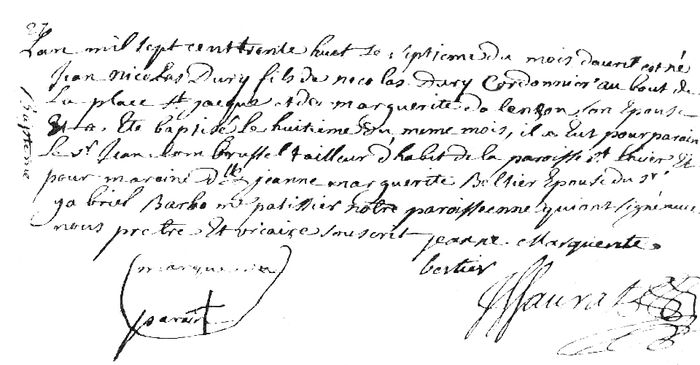 27
Lan mil sept cent trente huet le septieme du mois daoust est né
Jean nicolas Dury fils de nicolas Dury Cordonnier au bout de
La place st jacque et de marguerite dalenson son Epouse
Et a Eté baptisé Le huitieme du meme mois, il a Eut pour parain
Le sr Jean brussel tailleur d'habit de la paroisse st Et
pour maraine dlle jeanne marguerite Beltier Epouse du sr
gabriel Barbe me patissier notre paroissienne qui ont signé avec
nous pretre Et vicaire souscrit jeanne Marguerite
bertier
marque du
parain
Bapteme